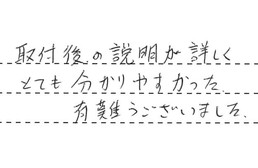 取付後の説明が詳しく
とても分かりやすかった.
有難うございました.